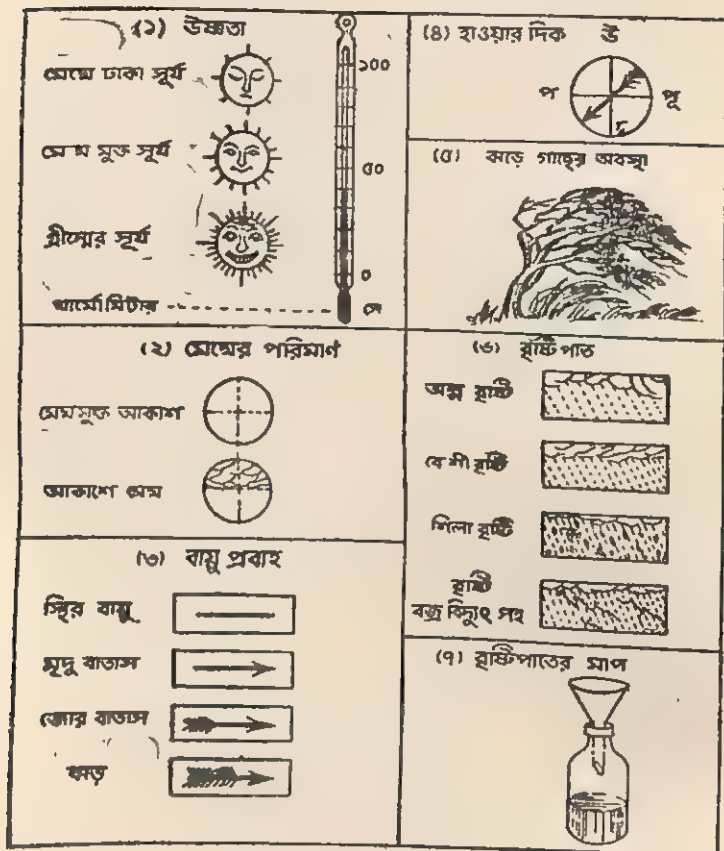 (১) উষ্ণতা
মেঘে ঢাকা সূর্য
মেঘ মুক্ত সূর্য
গ্রীষ্মের সূর্য
থার্মোমিটার
১০০
৫০
০
সে
(২) মেঘের পরিমাণ
মেঘমুক্ত আকাশ
আকাশে মেঘ
(৩) বায়ু প্রবাহ
স্থির বায়ু
মৃদু বাতাস
জোর বাতাস
ঝড়
(৪) হাওয়ার দিক
উ
প
পূ
দ
(৫) ঝড়ে গাছের অবস্থা
(৬) বৃষ্টিপাত
অল্প বৃষ্টি
বেশী বৃষ্টি
শিলা বৃষ্টি
বৃষ্টি
বজ্র বিদ্যুৎ সহ
(৭) বৃষ্টিপাতের মাপ